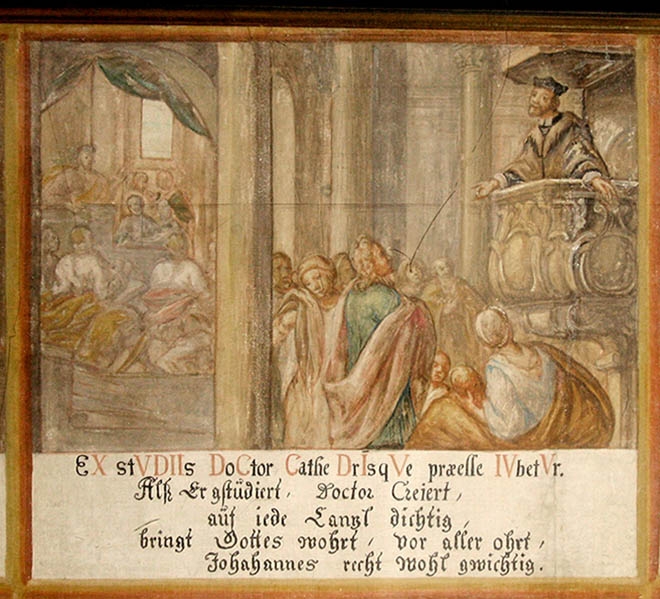 EX stVDIIs DoCtor Cathe DrIsqVe præesse IVbetVr.
Alß Er gstudiert, Doctor Creiert,
auf iede Canzl dichtig,
bringt Gottes wohrt, vor aller ohrt,
Johahannes recht wohl gwichtig.